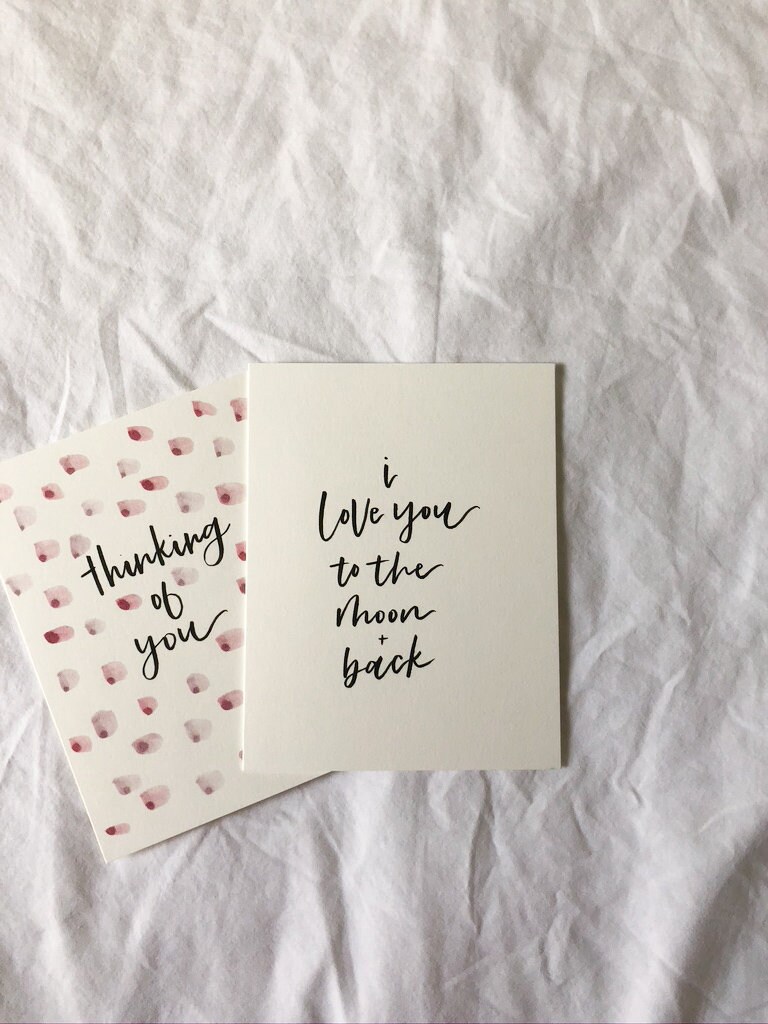 thinking
of
you
i
love you
to the
moon
+
back